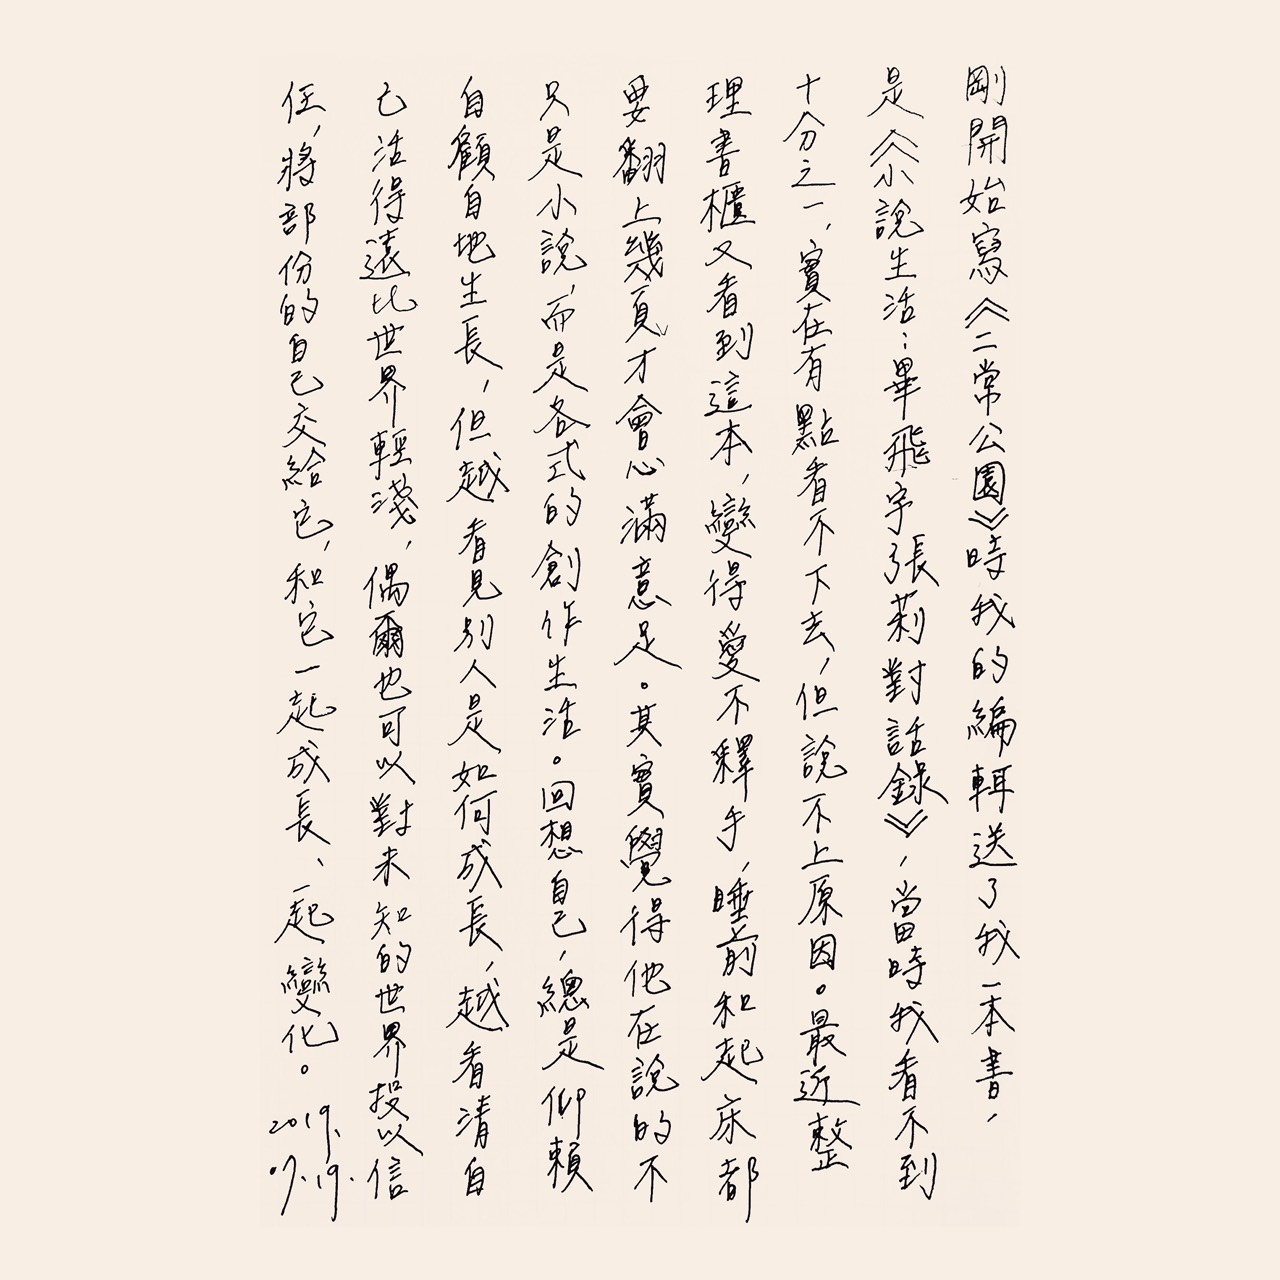 剛開始寫《二常公園》時我的編輯送了我一本書，
是《小說生活：畢飛宇張莉對話錄》，當時我看不到
十分之一，實在有點看不下去，但說不上原因。最近整
理書櫃又看到這本，變得愛不釋手，睡前和起床都
要翻上幾頁，才會心滿意足。其實覺得他在說的不
只是小說，而是各式的創作生活。回想自己，總是仰賴
自顧自地生長，但越看見別人是如何成長，越看清自
己活得遠比世界輕淺，偶爾也可以對未知的世界投以信
任，將部份的自己交給它，和它一起成長、一起變化。
2019.
07.19.